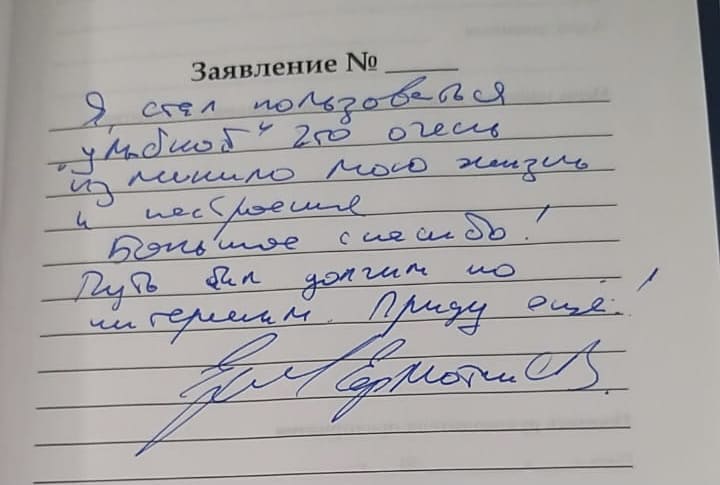 Заявление № ____
Я стал пользоваться
"улыбкой" это очень
изменило мою жизнь
и настроение
Большое спасибо!
Путь был долгим но
интересным. Приду ещё!